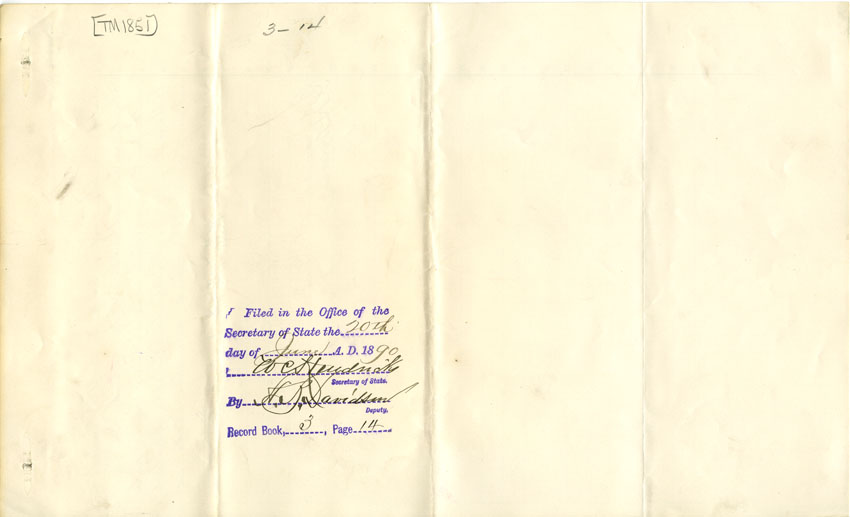 [TM 1851]
3-14
Filed in the Office of the
Secretary of State the 20th
day of June A. D. 1890
W C Hendricks
Secretary of State.
By Davidson
Deputy.
Record Book, 3, Page 14